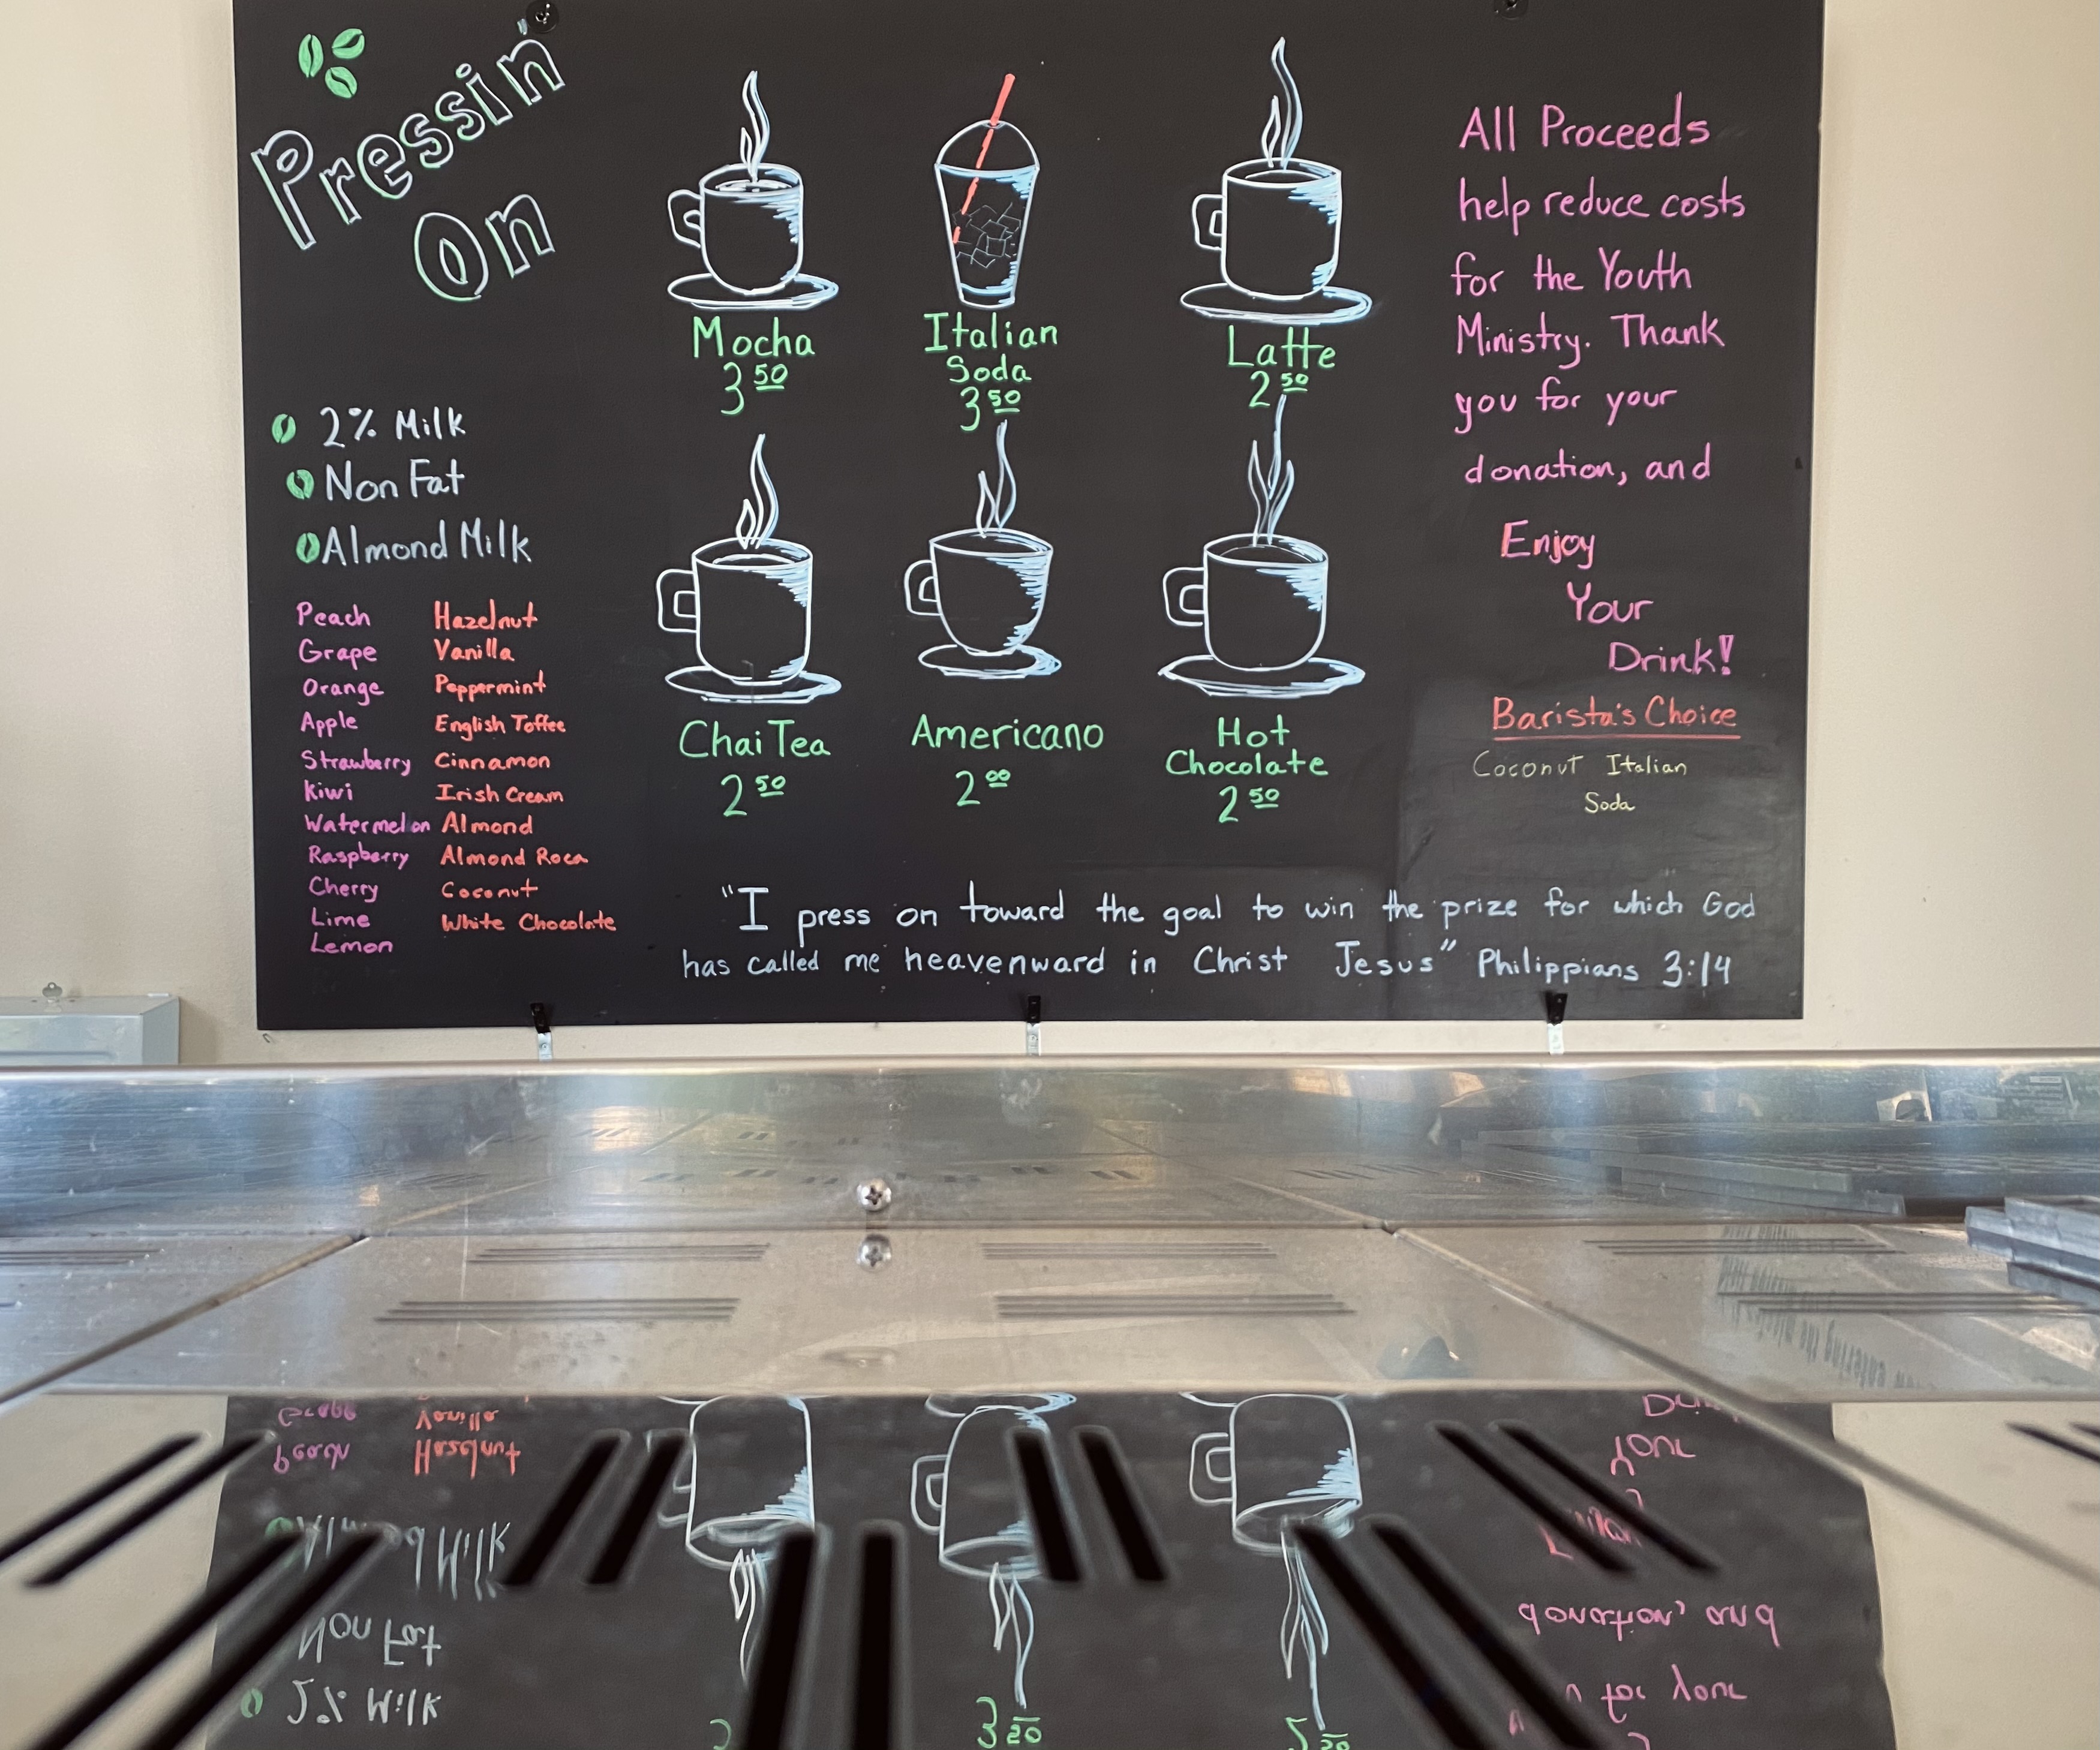 Pressin'
On
2% Milk
Non Fat
Almond Milk
Peach
Grape
Orange
Apple
Strawberry
Kiwi
Watermelon
Raspberry
Cherry
Lime
Lemon
Hazelnut
Vanilla
Peppermint
English Toffee
Cinnamon
Irish Cream
Almond
Almond Roca
Coconut
White Chocolate
Mocha
3 50
Italian
Soda
3 50
Latte
2 50
Chai Tea
2 50
Americano
2 00
Hot
Chocolate
2 50
All Proceeds
help reduce costs
for the Youth
Ministry. Thank
you for your
donation, and
Enjoy
Your
Drink!
Barista's Choice
Coconut Italian
Soda
"I press on toward the goal to win the prize for which God
has called me heavenward in Christ Jesus" Philippians 3:14